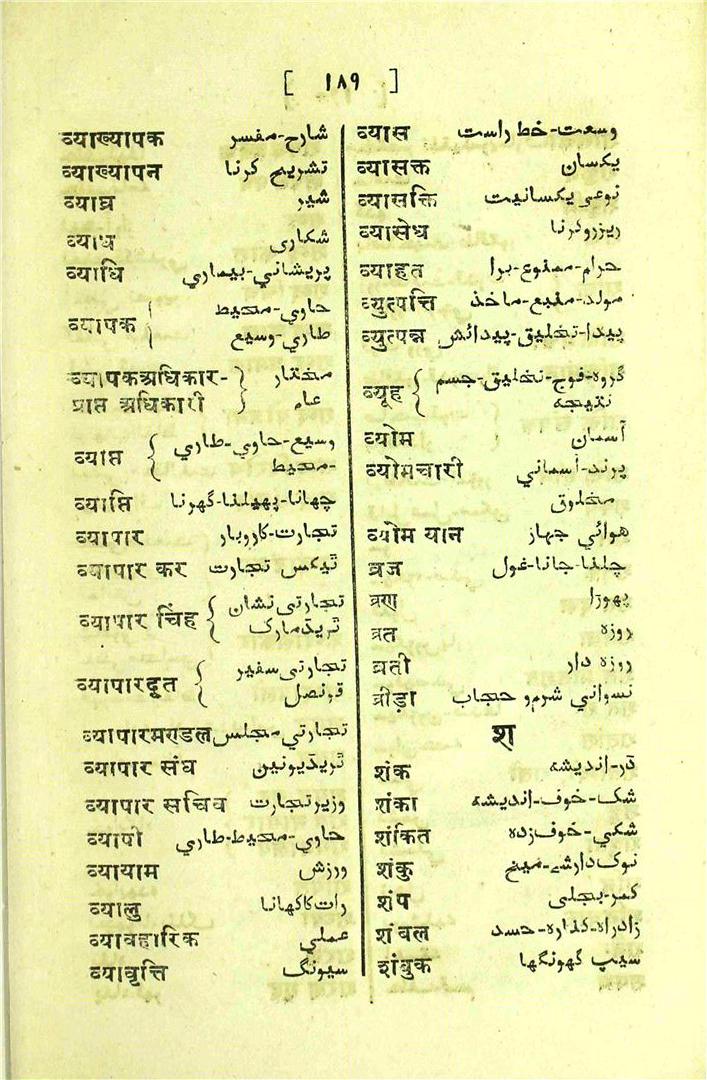 [ ۱۸۹ ]
व्याख्यापक شارح-مفسر
व्याख्यापन تشریح کرنا
व्याघ्र شیر
व्याध شکاری
व्याधि پریشانی-بیماری
व्यापक { حاوی-محیط
طاری-وسیع
व्यापकअधिकार- } مختار
प्राप्त अधिकारी } عام
व्याप्त { وسیع-حاوی-طاری
-محیط
व्याप्ति چھانا-پھیلنا-گھرنا
व्यापार تجارت-کاروبار
व्यापार कर ٹیکس تجارت
व्यापार चिंह { تجارتی نشان
ٹریڈمارک
व्यापारदूत { تجارتی سفیر
قونصل
व्यापारमण्डल تجارتی-مجلس
व्यापार संघ ٹریڈیونین
व्यापार सचिव وزیرتجارت
व्यापी حاوی-محیط-طاری
व्यायाम ورزش
व्यालु رات کاکھانا
व्यावहारिक عملی
व्यावृत्ति سیونگ
व्यास وسعت-خط راست
व्यासक्त یکسان
व्यासक्ति نوعی یکسانیت
व्यासेध ریزروکرنا
व्याहत حرام-ممنوع-برا
व्युत्पत्ति مولد-منبع-ماخذ
व्युत्पन्न پیدا-تخلیق-پیدائش
व्यूह { گروہ-فوج-تخلیق-جسم
نتیجہ
व्योम آسمان
व्योमचारी پرند-آسمانی
مخلوق
व्योम यान ہوائی جہاز
व्रज چلنا-جانا-غول
व्रण پھوڑا
व्रत روزہ
व्रती روزہ دار
व्रीड़ा نسوانی شرم و حجاب
श
शंक ڈر-اندیشہ
शंका شک-خوف-اندیشہ
शंकित شکی-خوف زدہ
शंकु نوک دارشے-میخ
शंप کمر-بجلی
शंबल زادراہ-کنارہ-حسد
शंबुक سیپ گھونگھا